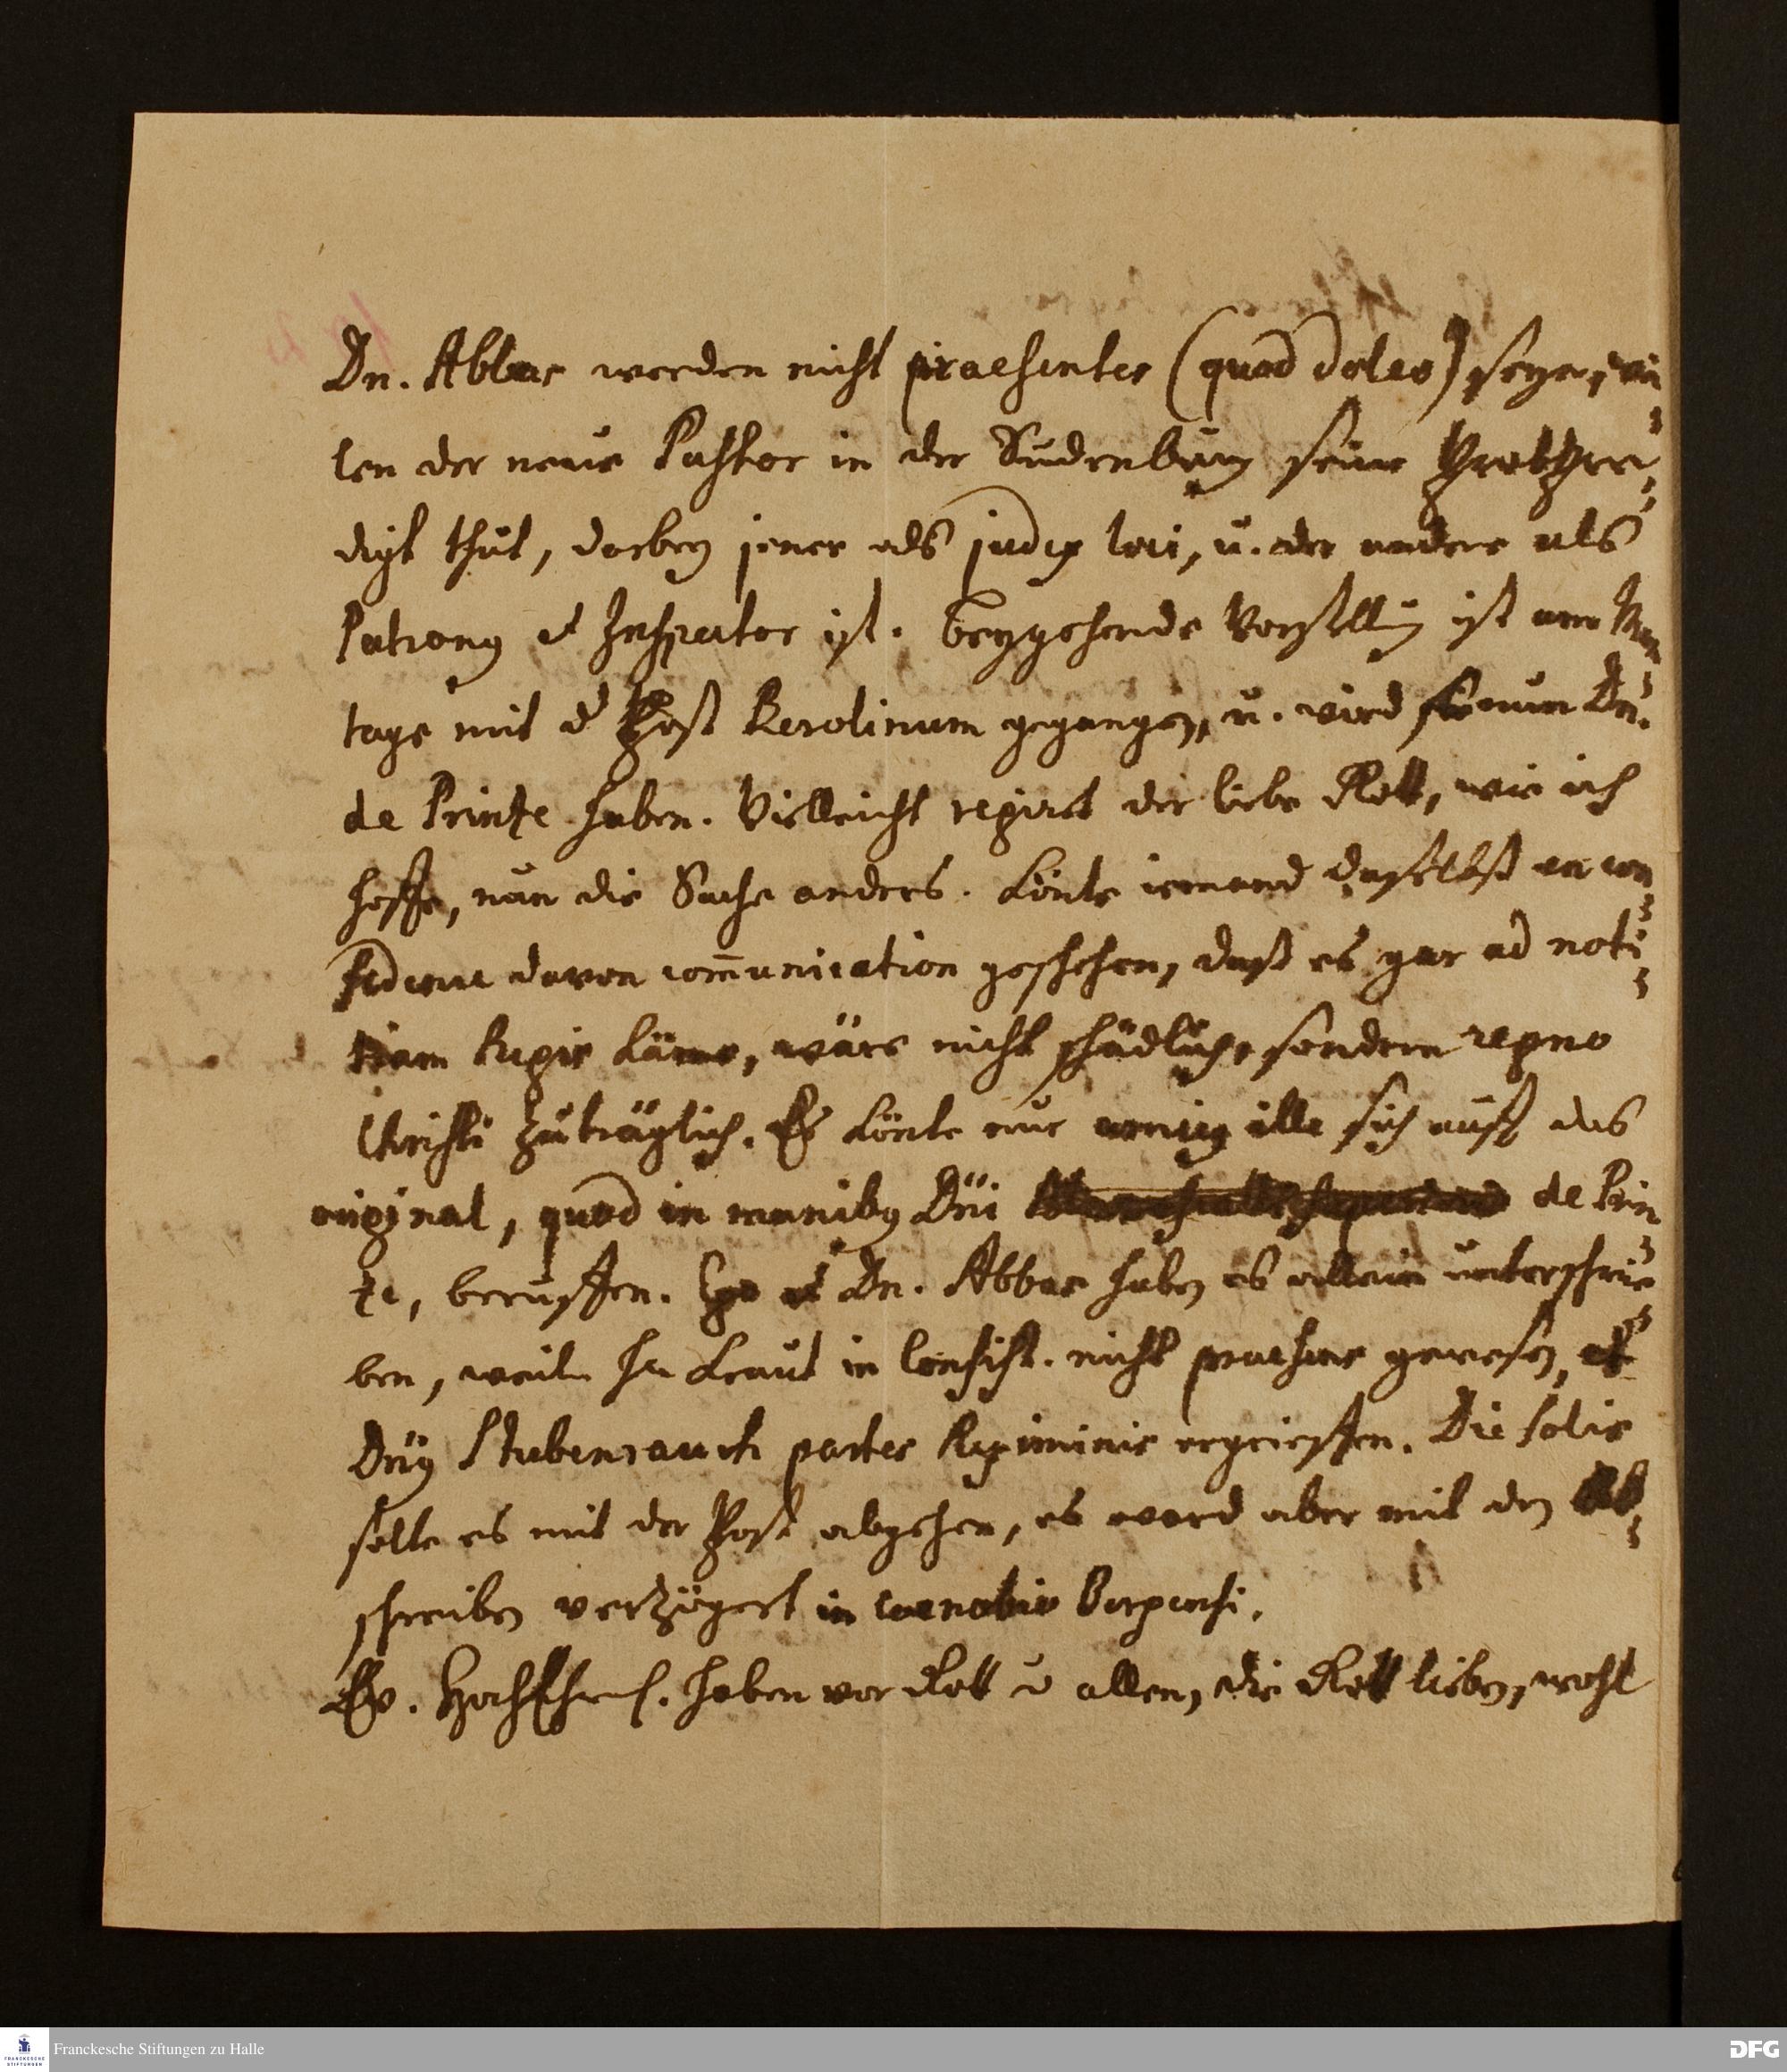 Dn. Abbas werden nicht praesentes (quod doleo) seyn, wei-
len der neue Pastor in der Sudenburg seine Probpre-
digt thut, dorbey jener als judex loci, u. der andere als
Patronus et Inspector ist. Beygehende Vorstellung ist am Mon-
tage mit der Post Berolinum gegangen, u. wird sie nun Dn.
de Printze haben. Vielleicht regirt der liebe Gott, wie ich
hoffe, nun die Sache anders. Könte iemand daselbst en con-
fidence davon com̄unication geschehen, daß es gar ad noti-
tiam Regis käme, wäre nicht schädlich, sondern regno
Christi zuträglich. Es könte nur amicus ille sich auff das
original, quod in manibus Dni de Prin-
tze, beruffen. Ego et Dn. Abbas haben es allein unterschrie-
ben, weiln Hr Kraut in Consist. nicht praesens gewesen, et
Dnus Stubenrauch partes Regiminis ergrieffen. Die solis
solte es mit der Post abgehen, es ward aber mit den Ab-
schreiben verzögert in coenobio Bergensi.
Ew. HochEhrw. haben vor Gott u allen, die Gott lieben, wohl
Franckesche Stiftungen zu Halle
FRANCKESCHE STIFTUNGEN
DFG